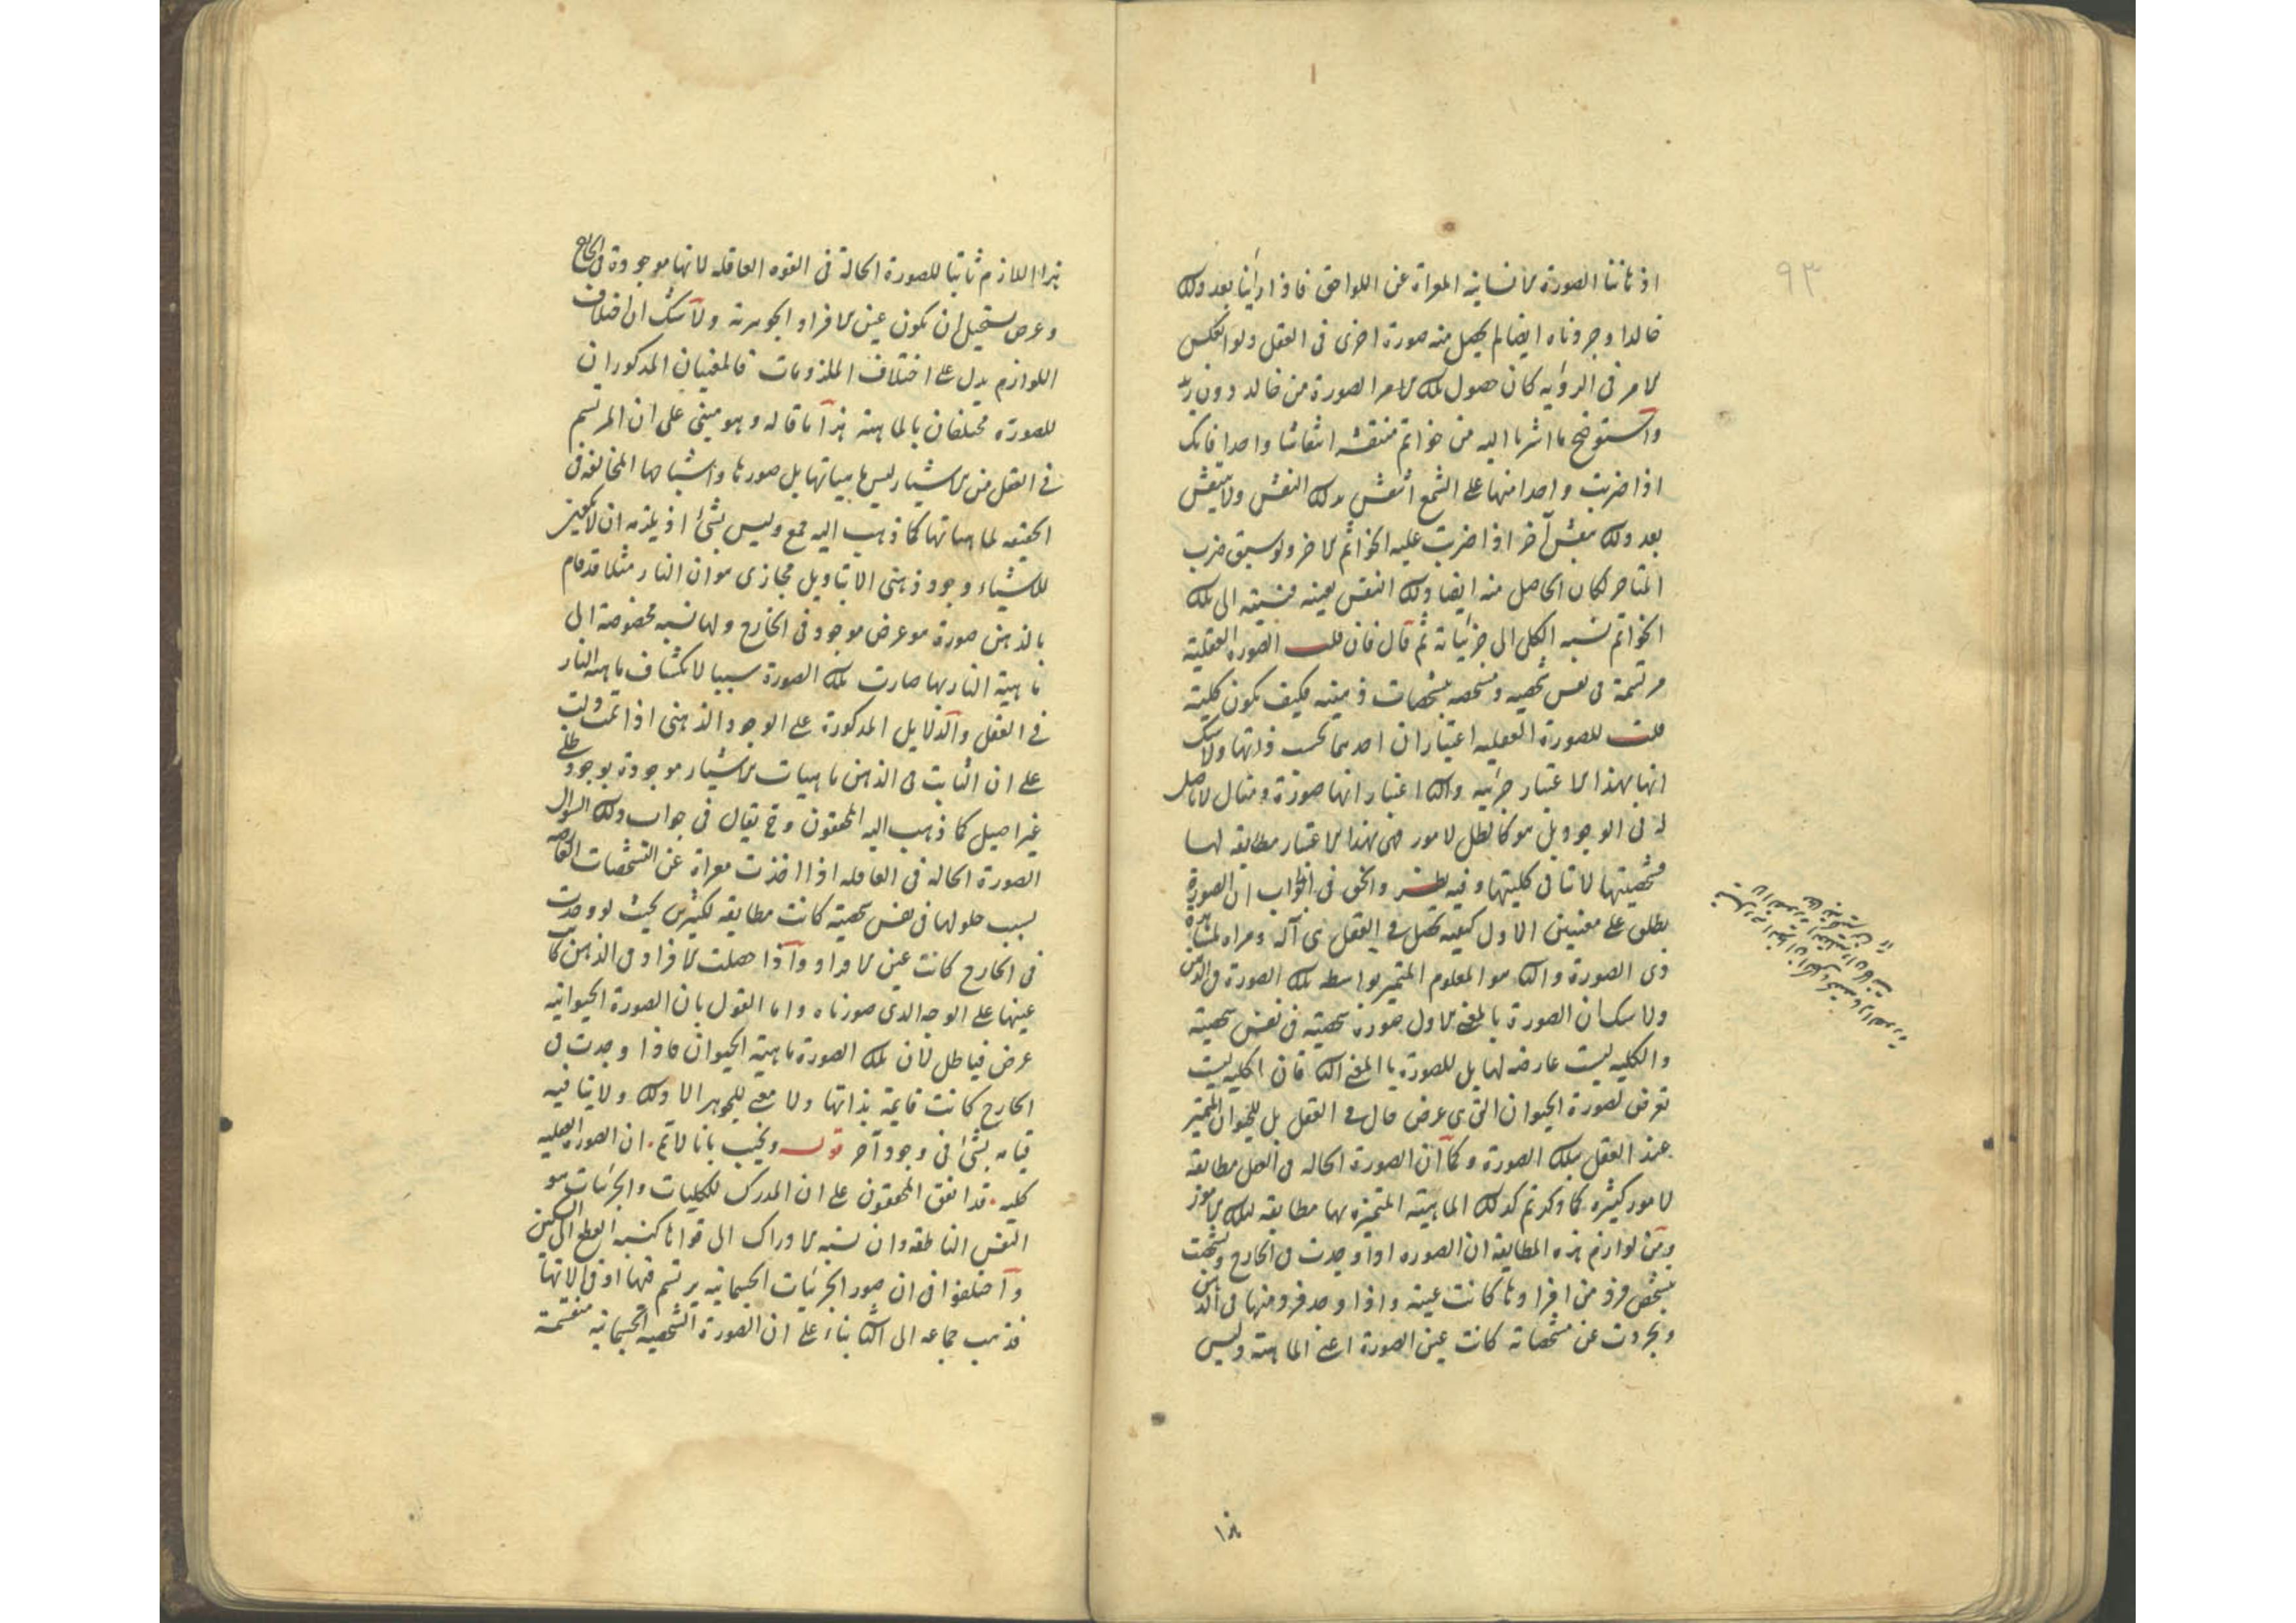 ٩٣
اذهاننا الصورة الانسانية المعراة عن اللواحق فاذا رأينا بعد ذلك
خالدا وجردناه ايضا لم يحصل منه صورة اخرى فى العقل ولو انعكس
الامر فى الرؤيه كان حصول تلك الامر الصورة من خالد دون زيد
واستوضح ما اشرنا اليه من خواتم منتقشه انتقاشا واحدا فانك
اذا ضربت واحدا منها على الشمع انتقش بذلك النقش ولا ينتقش
بعد ذلك بنقش آخر اذا ضربت عليه الخواتم الاخر ولو سبق ضرب
المتاخر لكان الحاصل منه ايضا ذلك النقش بعينه فنسبته الى تلك
الخواتم نسبه الكلى الى جزئياته ثم قال فان قلت الصوره العقلية
مرتسمة فى نفس شخصيه ومشخصه بتشخصات ذهنيه فكيف يكون كلية
قلت للصورة العقليه اعتباران احديهما بحسب ذاتها ولا شك
انها بهذا الاعتبار جزئيه والثانى اعتبار انها صورة ومثال لا تاصل
له فى الوجود بل هو كالظل لامور فهى بهذا الاعتبار مطابقه لها
فشخصيتها لا تنافى كليتها وفيه نظر والحق فى الجواب ان الصورة
يطلق على معنيين الاول كيفيه تحصل فى العقل هى آلة ومراة لمشاهدة
ذى الصورة والثانى هو المعلوم المتميز بواسطه تلك الصورة فى الذهن
ولا شك ان الصورة بالمعنى الاول صورة شخصية فى نفس شخصية
والكليه ليست عارضه لها بل للصورة بالمعنى الثانى فان الكليه ليست
تعرض لصورة الحيوان التى هى عرض حال فى العقل بل للحيوان المتميز
عند العقل بتلك الصورة وكما ان الصورة الحاله فى العقل مطابقة
لامور كثيره كما ذكرتم كذلك الماهية المتميزه بها مطابقه لتلك الامور
ومن لوازم هذه المطابقة ان الصوره اذا وجدت فى الخارج وتشخصت
بتشخص فرد من افرادها كانت عينه واذا وجد فرد منها فى الذهن
وتجردت عن مشخصاته كانت عين الصورة اعنى الماهية وليس
هذا اللازم ثابتا للصورة الحالة فى القوه العاقله لانها موجودة فى الخارج
وعرض يستحيل ان يكون عين الافراد الجوهرية ولا شك ان اختلاف
اللوازم يدل على اختلاف الملزومات فالمعنيان المذكوران
للصورة مختلفان بالماهية هذا ما قاله وهو مبنى على ان المرتسم
فى العقل من الاشياء ليس ماهياتها بل صورها واشباحها المخالفة فى
الحقيقه لماهياتها كما ذهب اليه جمع وليس بشئ اذ يلزمه ان لا يكون
للاشياء وجود ذهنى الا بتاويل مجازى هو ان النار مثلا قد قام
بالذهن صورة هو عرض موجود فى الخارج ولها نسبه مخصوصة الى
ماهية النار بها صارت تلك الصورة سببا لانكشاف ماهية النار
فى العقل والدلايل المذكورة على الوجود الذهنى اذا تمت دلت
على ان الثابت فى الذهن ماهيات الاشياء موجودة بوجود ظلى
غير اصيل كما ذهب اليه المحققون وح يقال فى جواب ذلك السؤال
الصورة الحاله فى العاقله اذا اخذت معراة عن التشخصات العارضه
بسبب حلولها فى نفس شخصية كانت مطابقه لكثيرين بحيث لو وجدت
فى الخارج كانت عين الافراد واذا حصلت الافراد فى الذهن كانت
عينها على الوجه الذى صورناه واما القول بان الصورة الحيوانيه
عرض فباطل لان تلك الصورة ماهية الحيوان فاذا وجدت فى
الخارج كانت قايمة بذاتها ولا معنى للجوهر الا ذلك ولا ينافيه
قيامه بشئ فى وجود آخر قوله ويجيب بانا لا نم ان الصوره العقليه
كليه قد اتفق المحققون على ان المدرك للكليات والجزئيات هو
النفس الناطقه وان نسبه الادراك الى قواها كنسبه القطع الى السكين
واختلفوا فى ان صور الجزئيات الجسمانيه يرتسم فيها او فى الاتها
فذهب جماعه الى الثانى بناء على ان الصورة الشخصيه الجسمانيه منقسمة